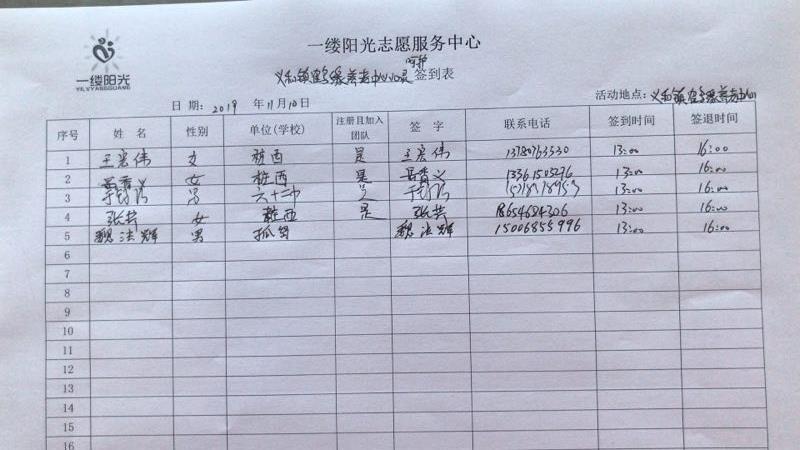 一缕阳光
YILVYANGGUANG
一缕阳光志愿服务中心
呵护
义和镇鹤缘养老中心心灵 签到表
日 期：2019 年11月10日 活动地点：义和镇鹤缘养老中心
序号 姓 名 性别 单位（学校） 注册且加入团队 签 字 联系电话 签到时间 签退时间
1 王宏伟 女 桩西 是 王宏伟 13780763530 13:00 16:00
2 女 桩西 是 13361505276 13:00 16:00
3 男 六十二中 13:00 16:00
4 张芸 女 桩西 是 张芸 18654684306 13:00 16:00
5 魏法辉 男 孤岛 魏法辉 15006855996 13:00 16:00
6
7
8
9
10
11
12
13
14
15
16